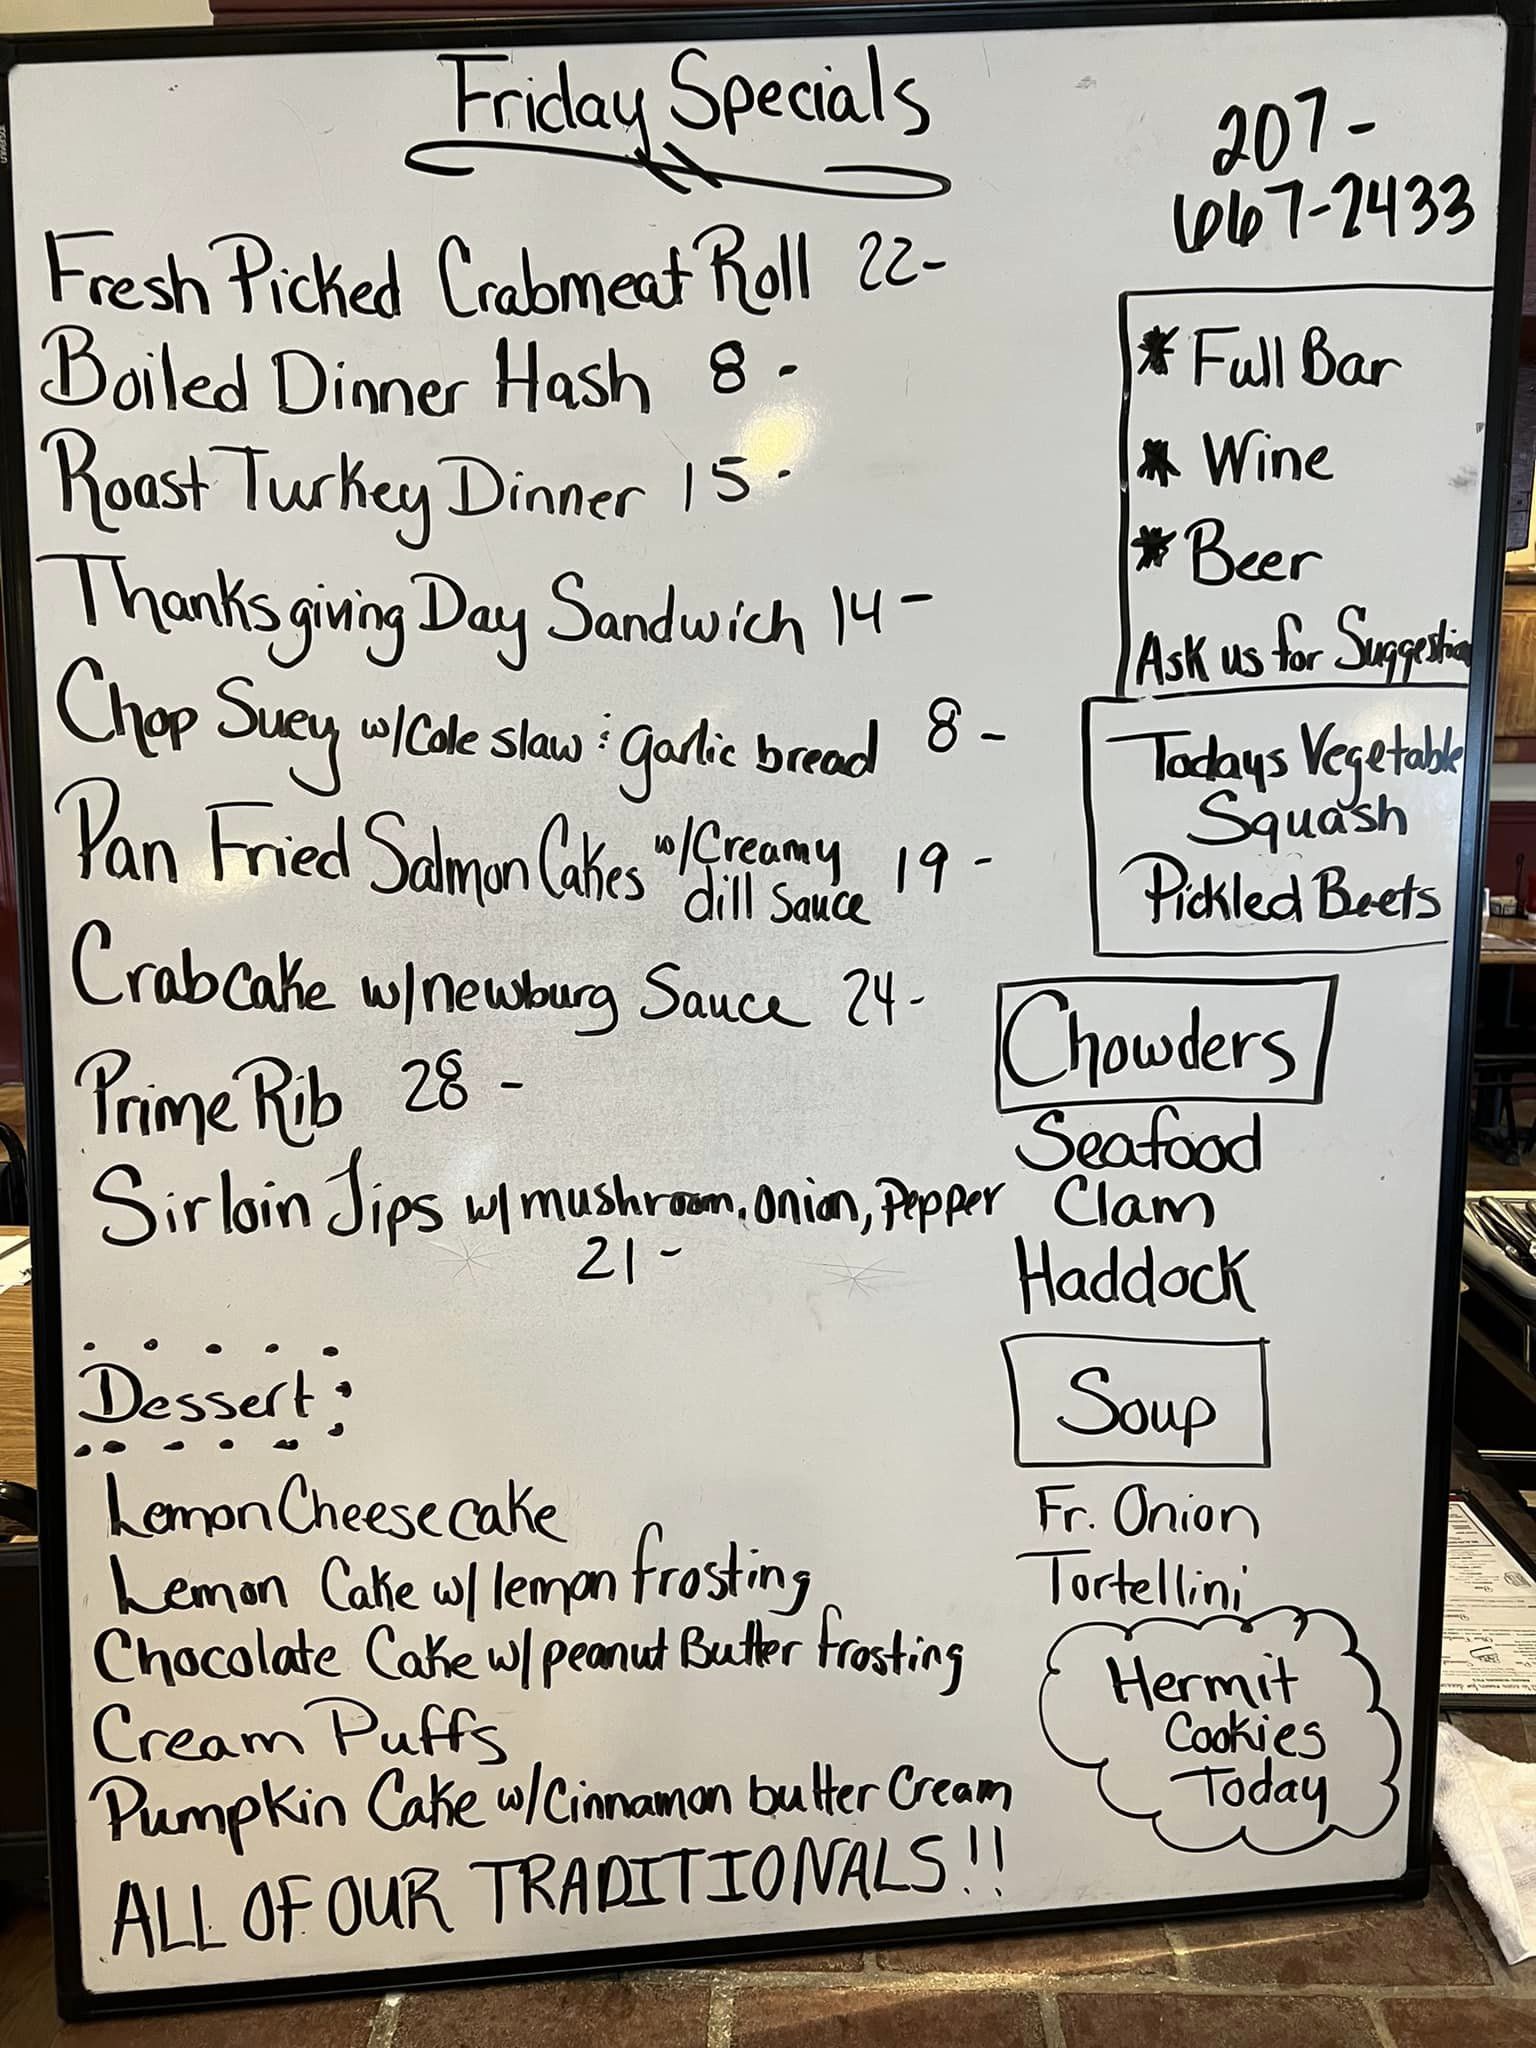 Friday Specials
207-
667-2433
Fresh Picked Crabmeat Roll 22-
Boiled Dinner Hash 8-
Roast Turkey Dinner 15-
Thanksgiving Day Sandwich 14-
Chop Suey w/Cole slaw & garlic bread 8-
Pan Fried Salmon Cakes w/Creamy
dill Sauce 19-
Crabcake w/newburg Sauce 24-
Prime Rib 28-
Sirloin Tips w/mushroom, onion, Pepper
21-
Dessert
Lemon Cheesecake
Lemon Cake w/lemon frosting
Chocolate Cake w/peanut Butter frosting
Cream Puffs
Pumpkin Cake w/Cinnamon butter Cream
ALL OF OUR TRADITIONALS!!
* Full Bar
* Wine
* Beer
Ask us for Suggestion
Todays Vegetable
Squash
Pickled Beets
Chowders
Seafood
Clam
Haddock
Soup
Fr. Onion
Tortellini
Hermit
Cookies
Today